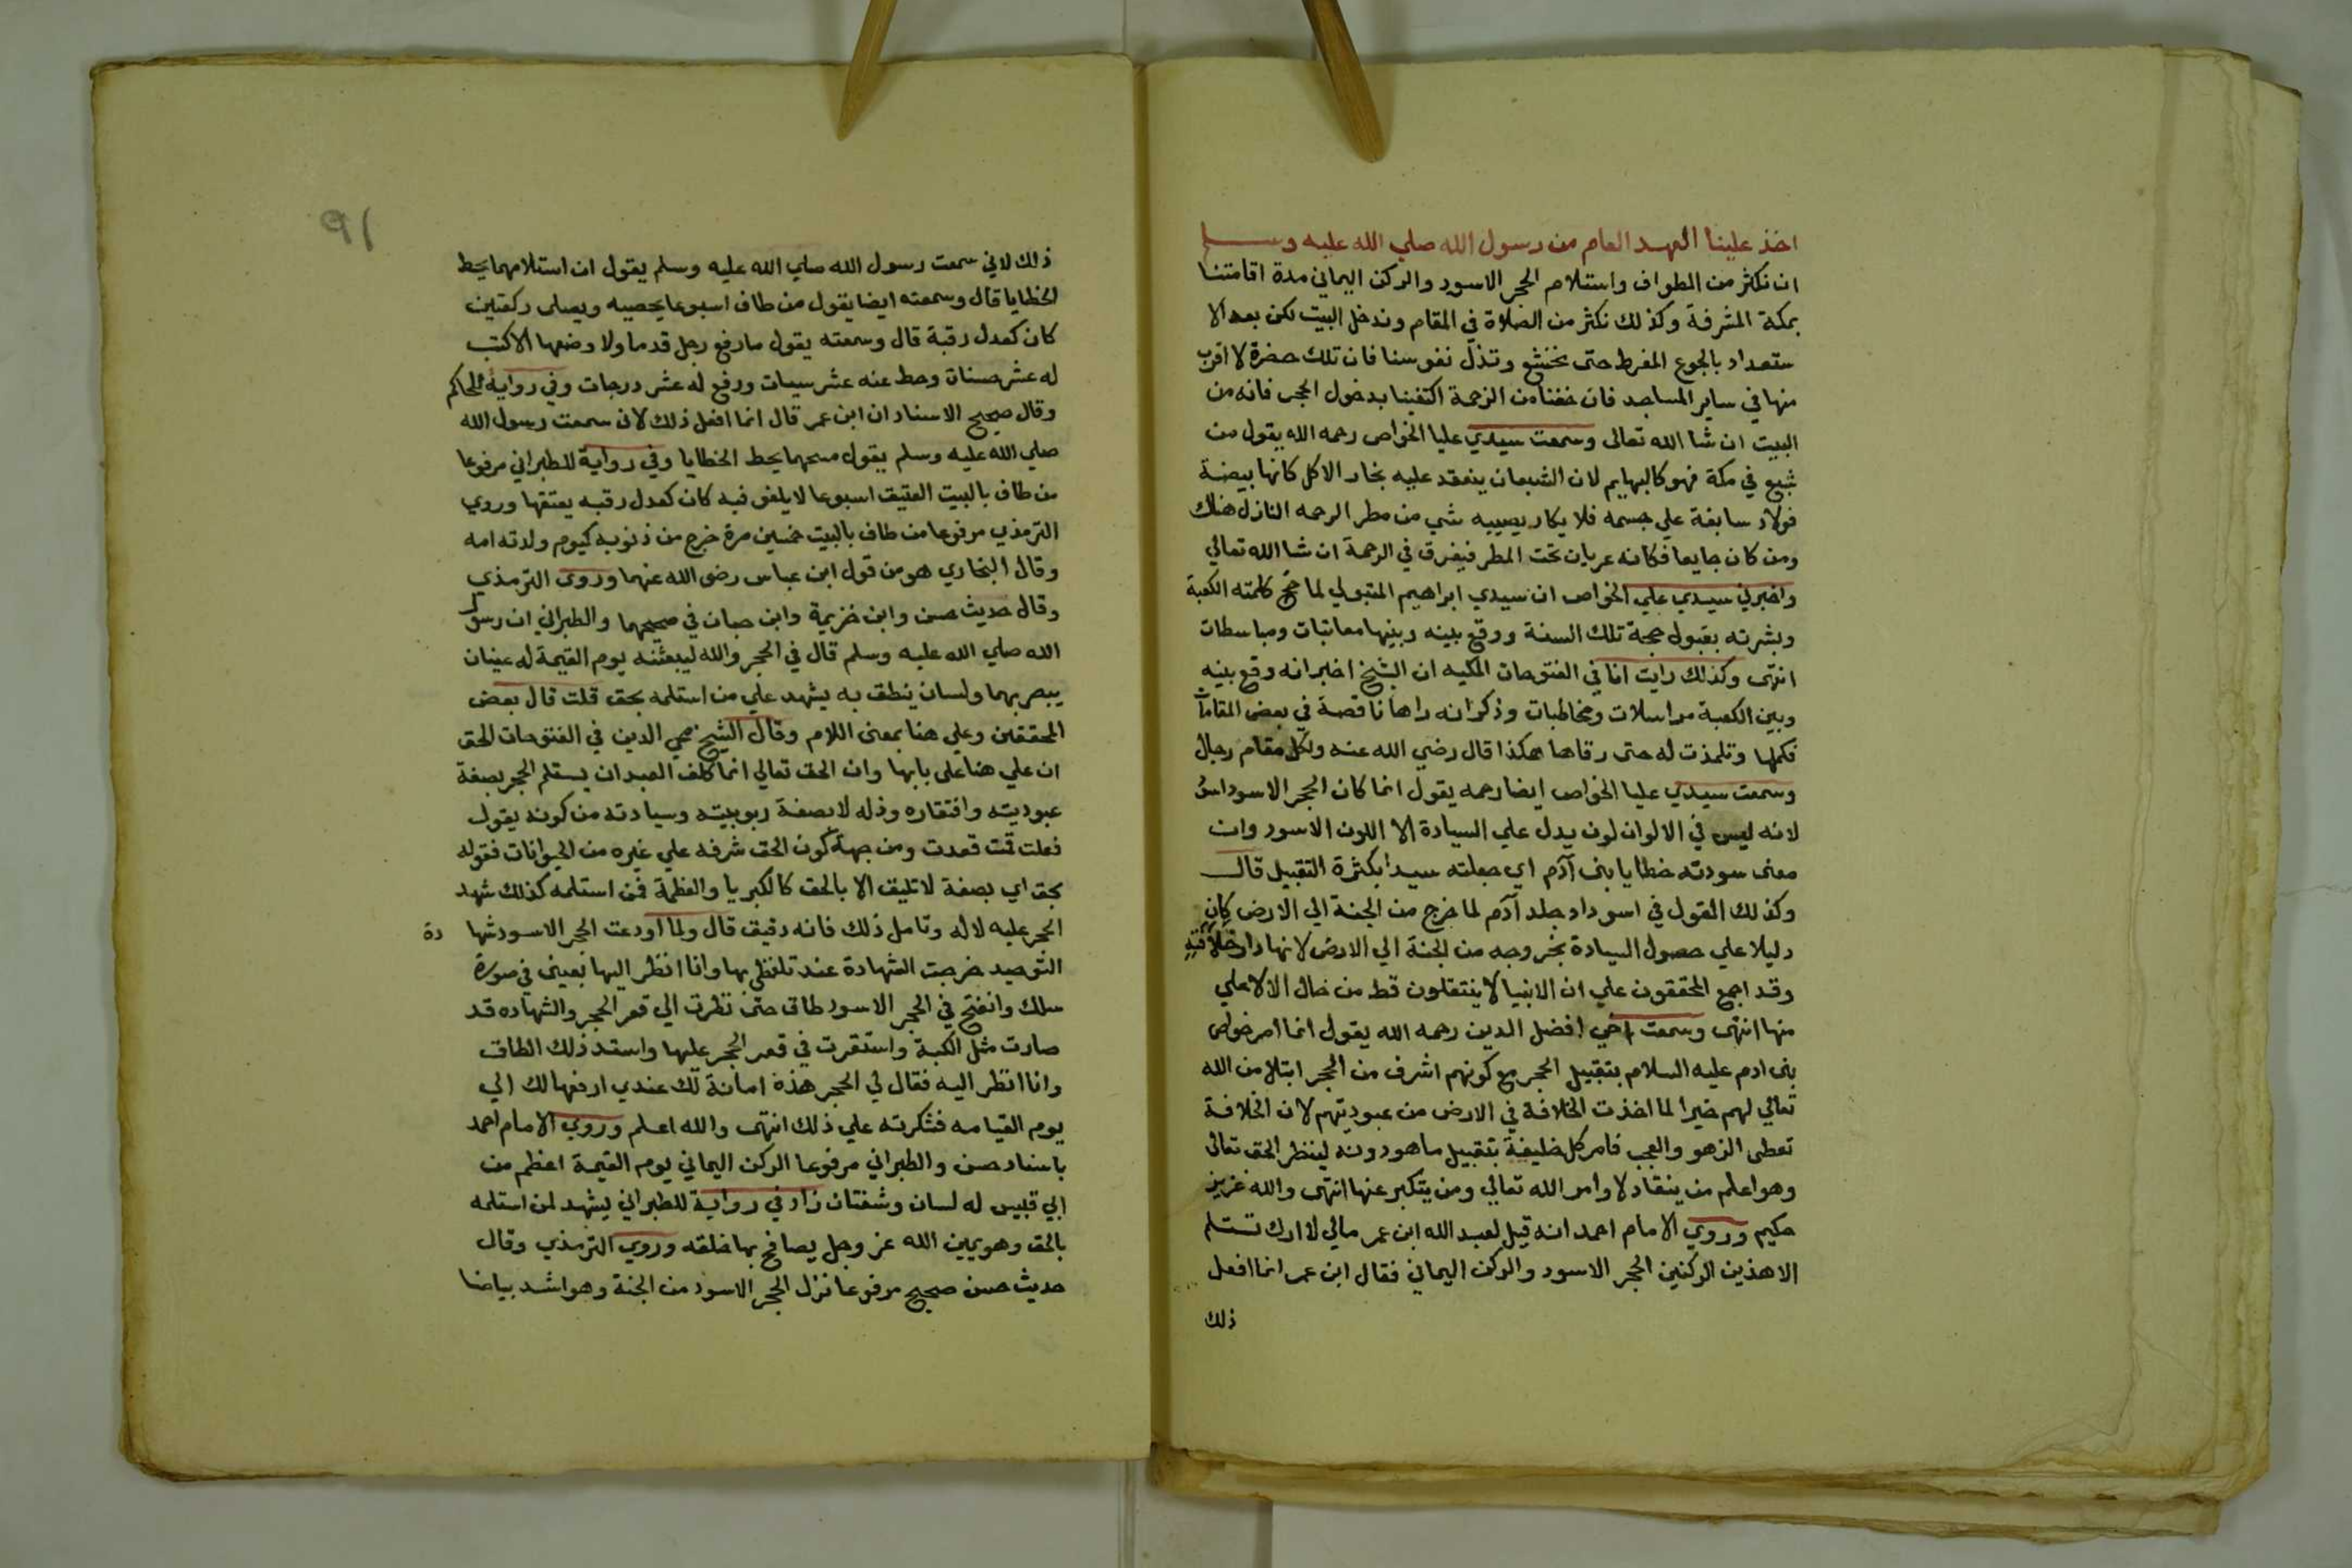 اخذ علينا العهد العام من رسول الله صلي الله عليه وسلم
ان نكثر من الطواف واستلام الحجر الاسود والركن اليماني مدة اقامتنا
بمكة المشرفة وكذلك نكثر من الصلاة في المقام وندخل البيت لكن بعد الا
ستعداد بالجوع المفرط حتى نخشع وتذل نفوسنا فان تلك حضرة لا اقرب
منها في ساير المساجد فان خفنا من الزحمة اكتفينا بدخول الحجر فانه من
البيت ان شا الله تعالى وسمعت سيدي عليا الخواص رحمه الله يقول من
شبع في مكة فهو كالبهايم لان الشبعان ينعقد عليه بخار الاكل كانها بيضة
فولاد سابغة علي جسمه فلا يكاد يصيبه شي من مطر الرحمه النازل هناك
ومن كان جايعا فكانه عريان تحت المطر فيغرق في الرحمة ان شا الله تعالي
واخبرني سيدي علي الخواص ان سيدي ابراهيم المتبولي لما حج كلمته الكعبة
وبشرته بقبول حجة تلك السنة ووقع بينه وبينها معاتبات ومباسطات
انتهى وكذلك رايت انا في الفتوحات المكيه ان الشيخ اخبر انه وقع بينه
وبين الكعبة مراسلات ومخاطبات وذكر انه راها ناقصة في بعض المقامات
فكملها وتلمذت له حتى رقاها هكذا قال رضي الله عنه ولكل مقام رجال
وسمعت سيدي عليا الخواص ايضا رحمه يقول انما كان الحجر الاسود اسود
لانه ليس في الالوان لون يدل علي السيادة الا اللون الاسود وان
معنى سودته خطايا بنى آدم اي جعلته سيدا بكثرة التقبيل قال
وكذلك القول في اسوداد جلد آدم لما خرج من الجنة الي الارض كان
دليلا علي حصول السيادة بخروجه من الجنة الي الارض لانها دار خلافته
وقد اجمع المحققون علي ان الانبيا لا ينتقلون قط من حال الا لاعلي
منها انتهى وسمعت اخي افضل الدين رحمه الله يقول انما امر خواص
بنى ادم عليه السلام بتقبيل الحجر مع كونهم اشرف من الحجر ابتلا من الله
تعالي لهم خيرا لما اخذت الخلافة في الارض من عبوديتهم لان الخلافة
تعطى الزهو والعجب فامر كل خليفة بتقبيل ما هو دونه لينظر الحق تعالى
وهو اعلم من ينقاد لاوامر الله تعالي ومن يتكبر عنها انتهى والله عزيز
حكيم وروي الامام احمد انه قيل لعبد الله ابن عمر مالي لا ارك تستلم
الا هذين الركنين الحجر الاسود والركن اليماني فقال ابن عمر انما افعل
ذلك
٩١
ذلك لاني سمعت رسول الله صلي الله عليه وسلم يقول ان استلامهما يحط
الخطايا قال وسمعته ايضا يقول من طاف اسبوعا يحصيه ويصلى ركعتين
كان كعدل رقبة قال وسمعته يقول ما رفع رجل قدما ولا وضعها الا كتب
له عشر حسنات وحط عنه عشر سيات ورفع له عشر درجات وفي رواية للحاكم
وقال صحيح الاسناد ان ابن عمر قال انما افعل ذلك لانى سمعت رسول الله
صلي الله عليه وسلم يقول مسحهما يحط الخطايا وفي رواية للطبراني مرفوعا
من طاف بالبيت العتيق اسبوعا لا يلغو فيه كان كعدل رقبه يعتقها وروي
الترمذي مرفوعا من طاف بالبيت خمسين مرة خرج من ذنوبه كيوم ولدته امه
وقال البخاري هو من قول ابن عباس رضى الله عنهما وروى الترمذي
وقال حديث حسن وابن خزيمة وابن حبان في صحيحهما والطبراني ان رسول
الله صلي الله عليه وسلم قال في الحجر والله ليبعثنه يوم القيمة له عينان
يبصر بهما ولسان ينطق به يشهد علي من استلمه بحق قلت قال بعض
المحققين وعلي هنا بمعنى اللام وقال الشيخ محي الدين في الفتوحات الحق
ان علي هنا على بابها وان الحق تعالي انما كلف العبد ان يستلم الحجر بصفة
عبوديته وافتقاره وذله لا بصفة ربوبيته وسيادته من كونه يقول
فعلت قمت قعدت ومن جهة كون الحق شرفه علي غيره من الحيوانات فقوله
بحق اي بصفة لا تليق الا بالحق كالكبريا والعظمة فمن استلمه كذلك شهد
الحجر عليه لا له وتامل ذلك فانه دقيق قال ولما اودعت الحجر الاسود شها دة
التوحيد خرجت الشهادة عند تلفظى بها وانا انظر اليها بعينى في صورة
سلك وانفتح في الحجر الاسود طاق حتى نظرت الي قعر الحجر والشهاده قد
صارت مثل الكبة واستقرت في قعر الحجر عليها واستد ذلك الطاق
وانا انظر اليه فقال لي الحجر هذه امانة لك عندي ارفعها لك الي
يوم القيامه فشكرته علي ذلك انتهى والله اعلم وروي الامام احمد
باسناد حسن والطبراني مرفوعا الركن اليماني يوم القيمة اعظم من
ابي قبيس له لسان وشفتان زاد في رواية للطبراني يشهد لمن استلمه
بالحق وهو يمين الله عز وجل يصافح بها خلقه وروي الترمذي وقال
حديث حسن صحيح مرفوعا نزل الحجر الاسود من الجنة وهو اشد بياضا